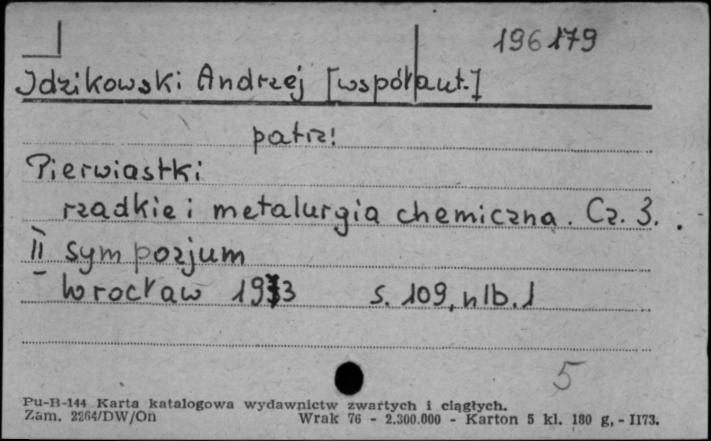 196179
Idzikowski Andrzej [współaut.]
patrz!
Pierwiastki
rzadkie i metalurgia chemiczna. Cz. 3.
II sympozjum
Wrocław 1973 s. 109, nlb. 1
5
Pu-B-144 Karta katalogowa wydawnictw zwartych i ciągłych.
Zam. 2264/DW/On Wrak 76 - 2.300.000 - Karton 5 kl. 180 g, - II73.